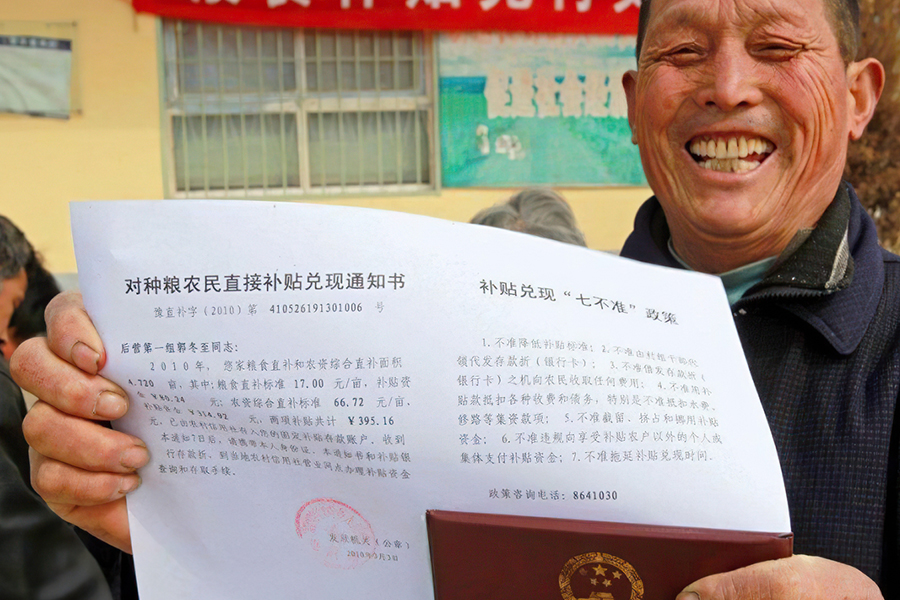 对种粮农民直接补贴兑现通知书
豫直补字（2010）第 410526191301006 号
后营第一组郭冬至同志：
2010年，您家粮食直补和农资综合直补面积
4.720 亩，其中：粮食直补标准 17.00 元/亩，补贴资
金 ￥80.24 元；农资综合直补标准 66.72 元/亩，
补贴资金 ￥314.92 元，两项补贴共计 ￥395.16
元，已由农村信用社存入您的固定补贴存款账户。收到
本通知7日后，请携带本人身份证、本通知书和补贴银
行存款折，到当地农村信用社营业网点办理补贴资金
查询和存取手续。
发放机关（公章）
补贴兑现“七不准”政策
1.不准降低补贴标准；2.不准由村组干部代
领代发存款折（银行卡）；3.不准借发存款折
（银行卡）之机向农民收取任何费用；4.不准用补
贴款抵扣各种收费和债务，特别是不准抵扣水费、
修路等集资款项；5.不准截留、挤占和挪用补贴
资金；6.不准违规向享受补贴农户以外的个人或
集体支付补贴资金；7.不准拖延补贴兑现时间．
政策咨询电话：8641030